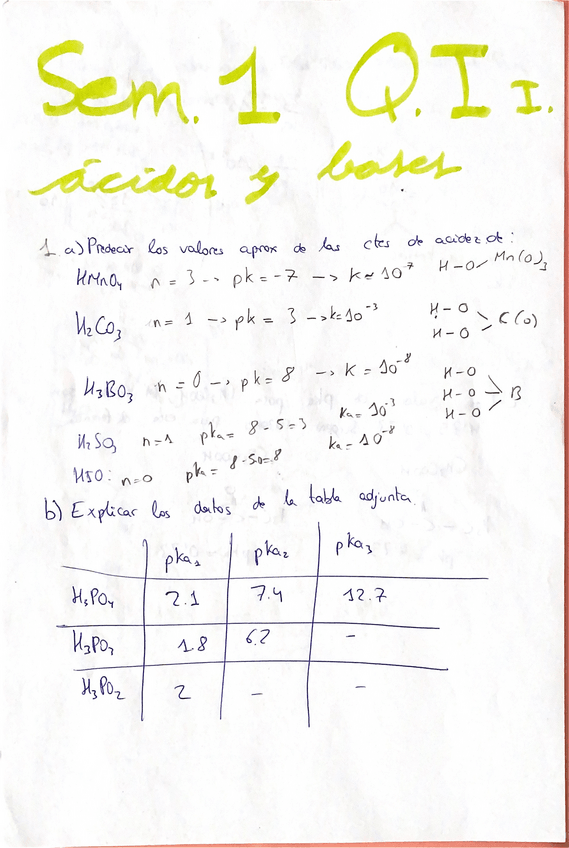 Sem. 1 Q.I I.
ácidos y bases
1 a) Predecir los valores aprox de las ctes de acidez de:
HMnO₄ n = 3 -> pk = -7 -> k ≈ 10⁷ H-O Mn(O)₃
H₂CO₃ n = 1 -> pk = 3 -> k = 10⁻³ H-O H-O C(O)
H₃BO₃ n = 0 -> pk = 8 -> k = 10⁻⁸ H-O H-O H-O B
H₂SO₃ n = 1 pka = 8 - 5 = 3 ka = 10⁻³
HSO: n = 0 pka = 8 - 5·0 = 8 ka = 10⁻⁸
b) Explicar los datos de la tabla adjunta.
pka₁ pka₂ pka₃
H₃PO₄ 2.1 7.4 12.7
H₃PO₃ 1.8 6.2 -
H₃PO₂ 2 - -